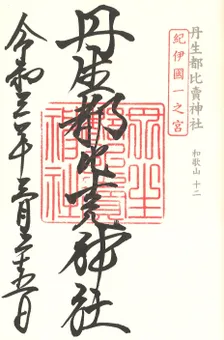 丹生都比賣神社
紀伊國一之宮
和歌山 十二
丹生都比売神社
令和三年三月二十五日